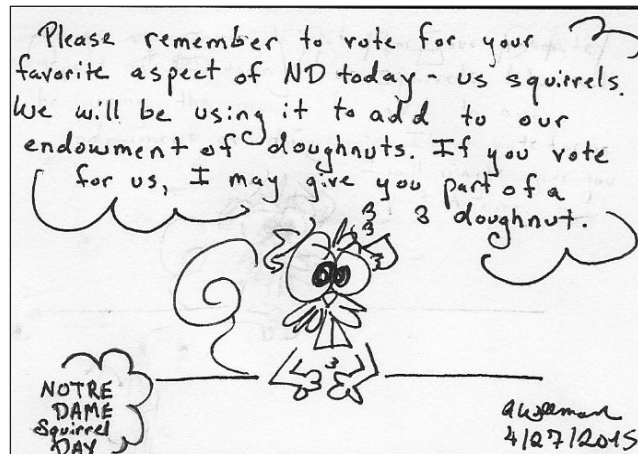 Please remember to vote for your
favorite aspect of ND today - us squirrels.
We will be using it to add to our
endowment of doughnuts. If you vote
for us, I may give you part of a
doughnut.
NOTRE
DAME
Squirrel
DAY
4/27/2015